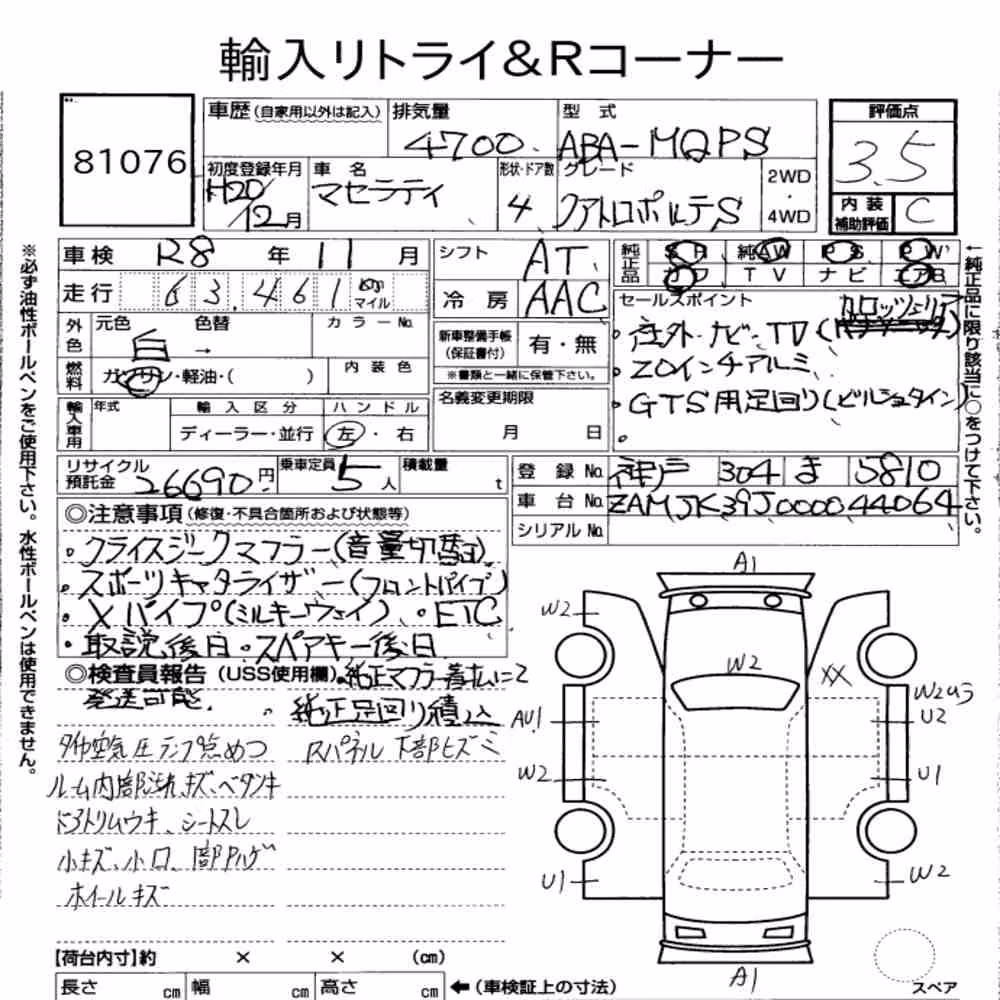 輸入リトライ&Rコーナー
81076
車歴(自家用以外は記入)
排気量
4700
型 式
ABA-MQPS
評価点
3.5
内装補助評価
C
初度登録年月
H20/12月
車 名
マセラティ
形状・ドア数
4
グレード
クアトロポルテS
2WD
・
4WD
※必ず油性ボールペンをご使用下さい。水性ボールペンは使用できません。
車検 R8 年 11 月
走行 63,461 km マイル
外色
元色
白
色替
→
カラーNo.
燃料
ガソリン・軽油・( )
内装色
輸入車用
年式
輸入区分
ディーラー・並行
ハンドル
左・右
シフト
AT
冷房
AAC
新車整備手帳
(保証書付)
有・無
※書類と一緒に保管下さい。
名義変更期限
月 日
純正品
SR 純AW PS PW
カワ TV ナビ エアB
セールスポイント
・社外ナビ・TV(カロッツェリア)
・20インチアルミ
・GTS用足回り(ビルシュタイン)
←純正品に限り該当に○をつけて下さい。
リサイクル預託金
26690円
乗車定員
5人
積載量
t
登録No. 神戸 304 ま 5810
車台No. ZAMJK39J000044064
シリアルNo.
◎注意事項(修復・不具合箇所および状態等)
・クライスジークマフラー(音量切替可)
・スポーツキャタライザー(フロントパイプ)
・Xパイプ(ミルキーウェイ) ・ETC
・取説後日・スペアキー後日
◎検査員報告(USS使用欄)・純正マフラー着払いにて
発送可能 ・純正足回り積込
タイヤ空気圧ランプ点めつ
Rパネル下部ヒズミ
ルーム内部汚れ、キズ、ベタツキ
ドアトリムウキ、シートスレ
小キズ、小凹、
ホイールキズ
A1
W2
W2
XX
AU1
W2
U1
W2
U2
U1
W2
A1
スペア
【荷台内寸】約 × × (cm)
長さ cm 幅 cm 高さ cm
←(車検証上の寸法)